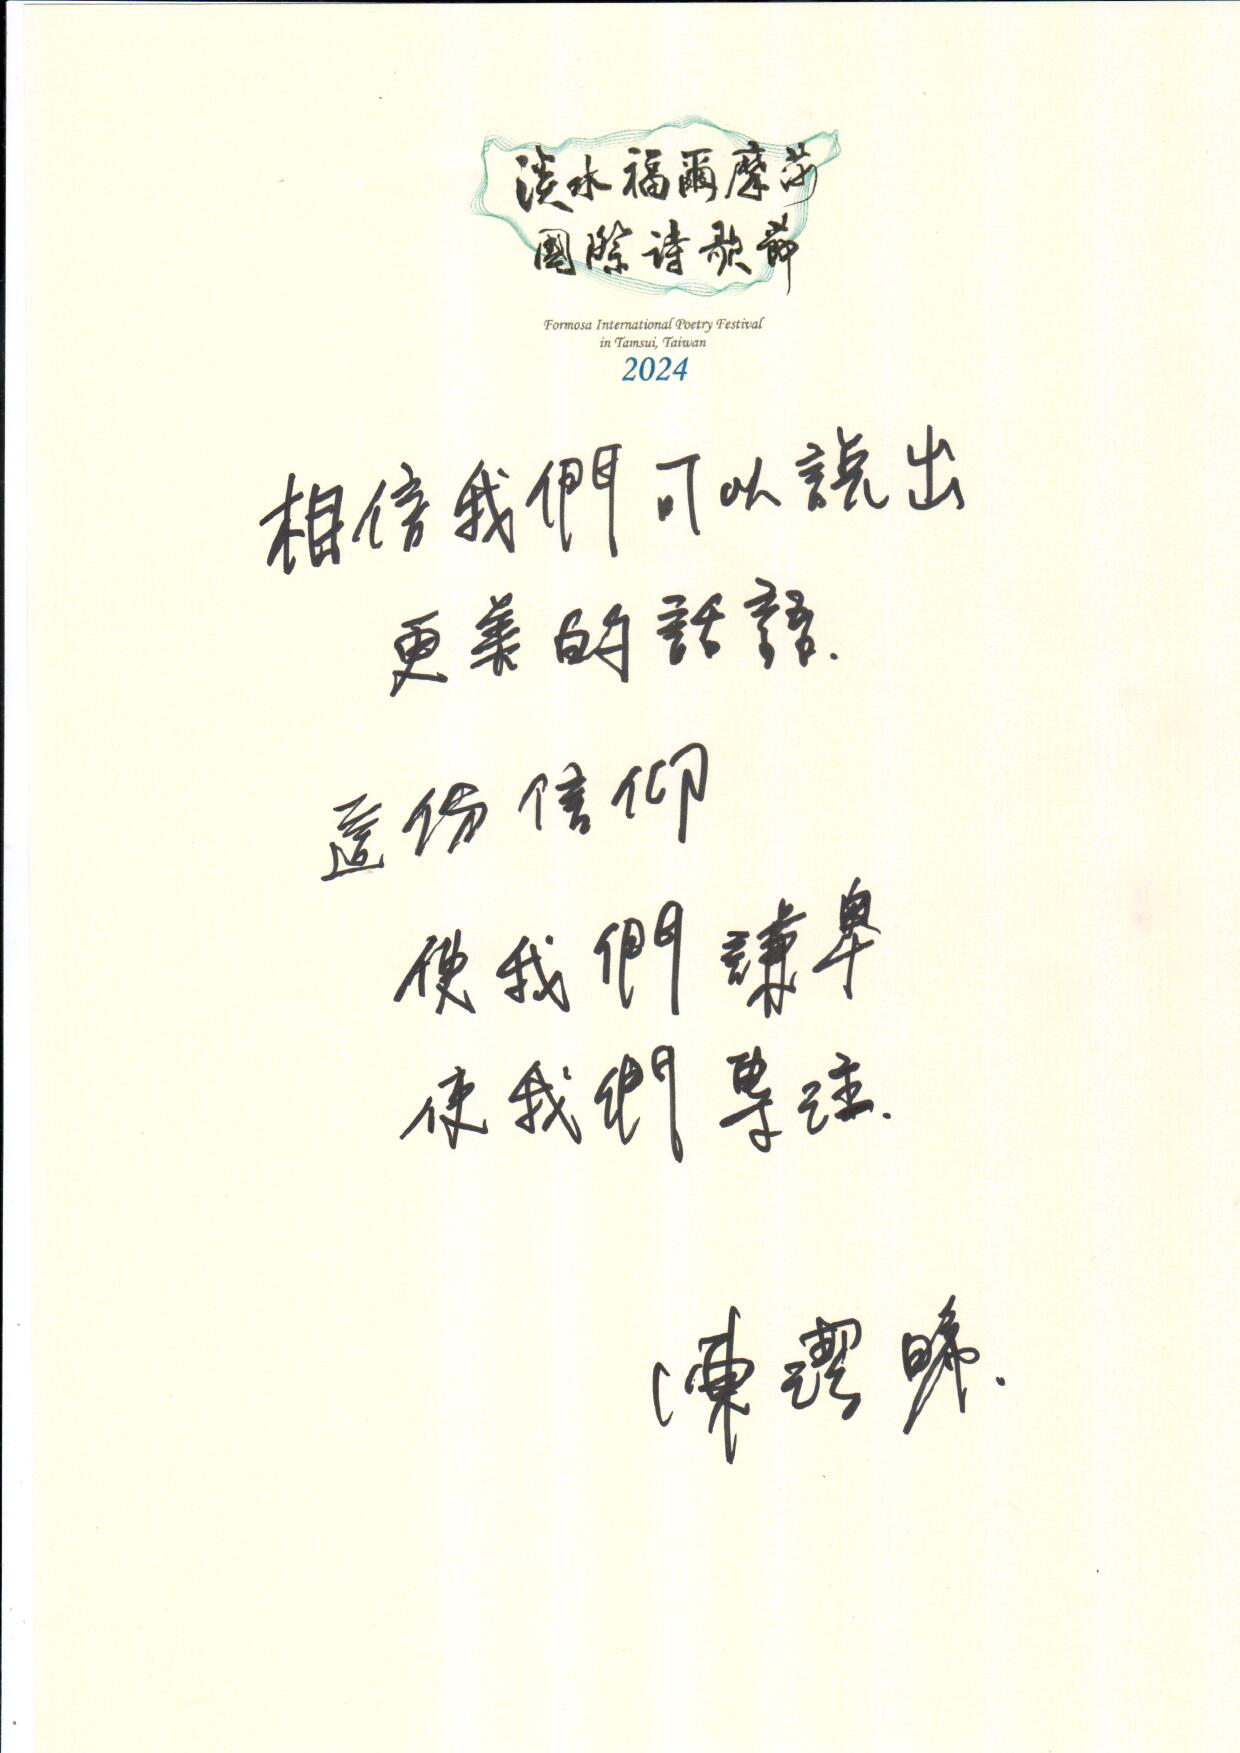 淡水福爾摩莎
國際詩歌節
Formosa International Poetry Festival
in Tamsui, Taiwan
2024
相信我們可以說出
更美的話語.
這份信仰
使我們謙卑
使我們專注.
陳潔晞.